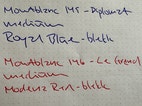 Montblanc 145 - Diplomat
medium
Royal Blue - blekk
Montblanc 146 - Le Grand
medium
Modena Red - blekk